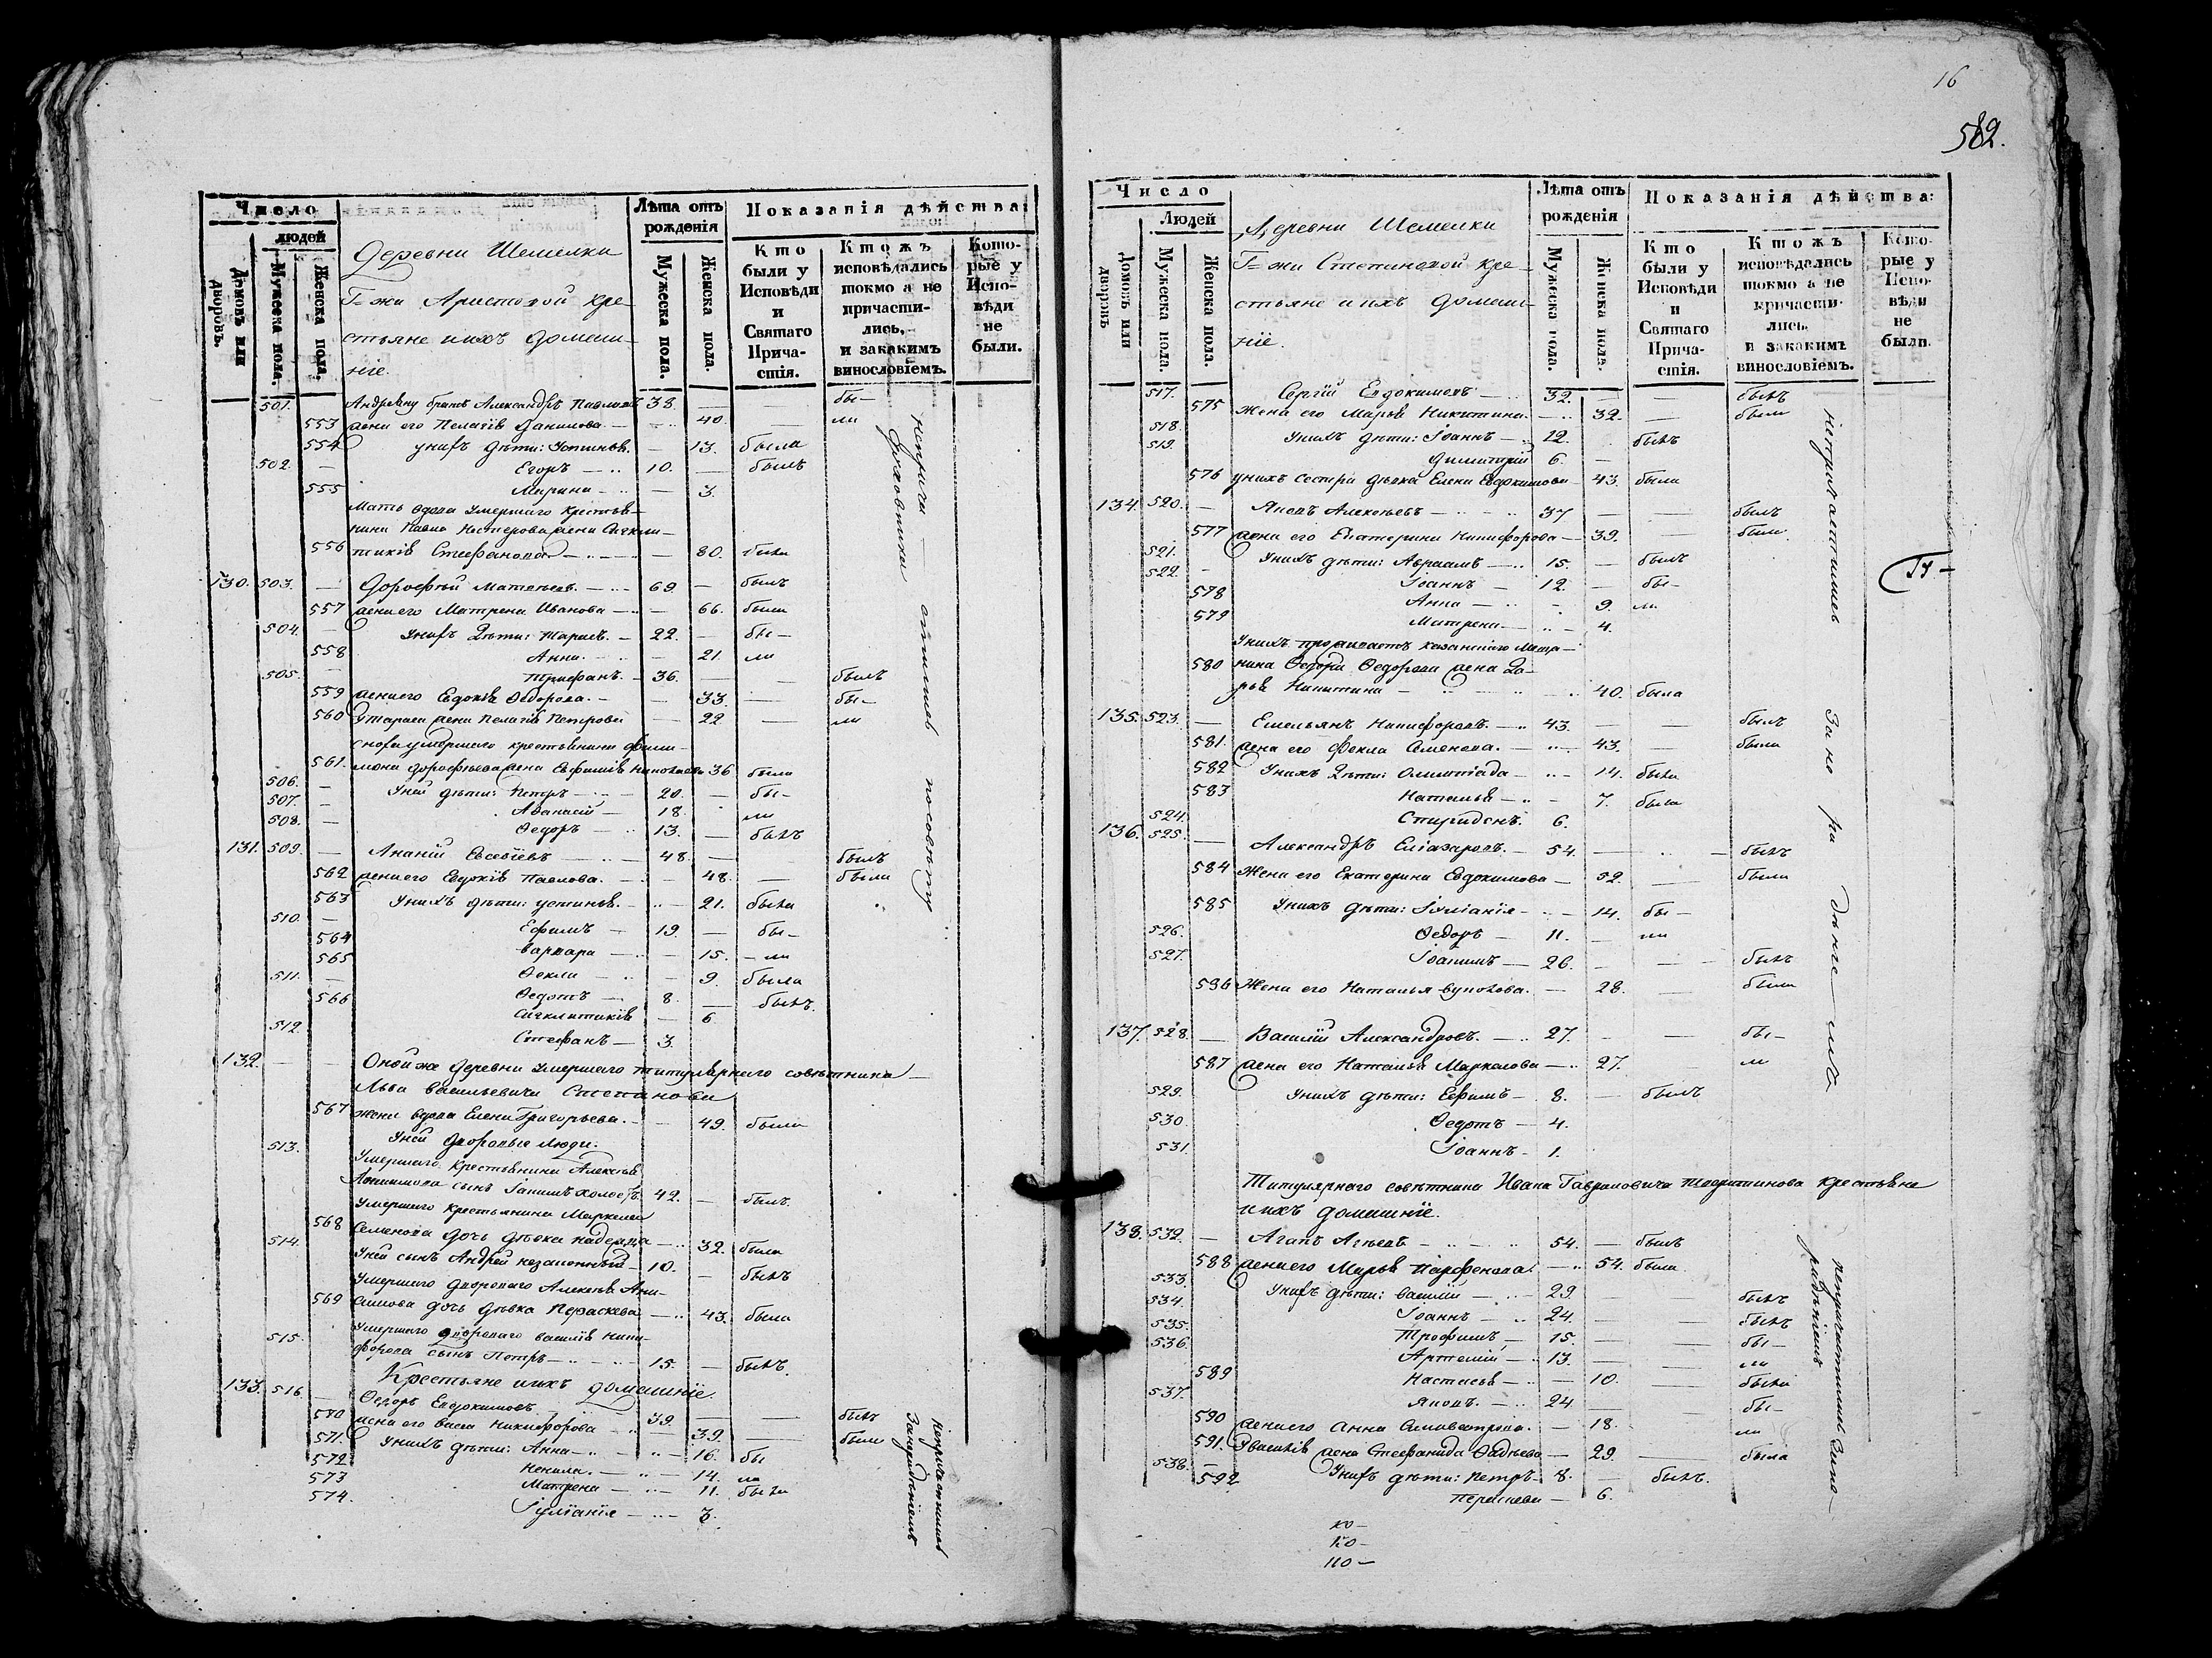 Число
людей
Домовъ или дворовъ.
Мужеска пола.
Женска пола.
Деревни Шемелки
Г=жи Аристовой кре-
стьяне и ихъ домаш-
ніе.
Лѣта отъ рожденія
Мужеска пола.
Женска пола.
Показанія дѣйства
Кто были у Исповѣди и Святаго Прича-стія.
Ктожъ исповѣдались токмо а не причасти-лись, и закакимъ винословіемъ.
Кото-рые у Испо-вѣди не были.
501. Андреяну братъ Александръ Павловъ 38. — — бы-
553 жена его Пелагія Данилова — 40. — ли
554 у нихъ дѣти: Устинья. — 13. была
502. — Егоръ — 10. — былъ
555 Марина — 3.
Мать вдова умершаго крестья-
нина Павла Нестерова жена Синкли-
556 тикія Стефанова — 80. была
130. 503. — Дорофѣй Матвѣевъ. — 69. — былъ
557 жена его Матрена Иванова — 66. была
504. — У нихъ дѣти: Тарасъ. — 22. — бы-
558 Анна. — 21. ли
505. — Трифанъ. — 36. — — былъ
559 жена его Евдокія Ѳедорова. — 33. — бы-
560 У Тараса жена Пелагія Петрова — 22 — ли
сноха умершаго крестьянина Фили-
561. мона Дорофѣева жена Евфимія Николаева 36 была
506. — У ней дѣти: Петръ — 20. — бы-
507. — Аѳанасій — 18. ли
508. — Ѳедоръ — 13. — былъ
131. 509. — Ананій Евсевіевъ — 48. — былъ
562 жена его Евдокія Павлова. — 48. — была
563 У нихъ дѣти: Устинья. — 21. была
510. — Ефимъ — 19. — бы-
564 Варвара — 15. — ли
565
511. — Ѳекла — 9. была
566 Ѳедотъ — 8. — былъ.
Синклитикія — 6.
512. Стефанъ — 3.
132. — — Оной же деревни умершаго титулярнаго совѣтника
Льва Васильевича Степанова
567 жена вдова Елена Григорьева. — 49. была
У ней дворовые люди.
513. Умершаго крестьянина Алексѣя
сынъ холостъ. 42. — былъ.
Умершаго крестьянина Маркела
568 Семенова дочь дѣвка Надежда — 32. была
514. У ней сынъ Андрей незаконный — 10. — былъ
Умершаго двороваго Алексѣя Ани-
569 симова дочь дѣвка Параскева — 43. была
515. Умершаго двороваго Василія Ники-
форова сынъ Петръ — 15. — былъ.
Крестьяне и ихъ домашніе.
133. 516. — Ѳедоръ Евдокимовъ — 39 — — былъ
570 жена его Васса Никифорова — 39. — была
571. У нихъ дѣти: Анна — 16. бы
572 Ненила. — 14. ла
573 Матрена — 11. была
574. Іуліанія — 3.
непричастились по совѣту духовника
Непричастились
Занерадѣніемъ
16
582.
Число
Людей
Домовъ или дворовъ
Мужеска пола.
Женска пола.
Деревни Шемелки
Г=жи Степановой кре-
стьяне и ихъ домаш-
ніе.
Лѣта отъ рожденія
Мужеска пола.
Женска пола.
Показанія дѣйства:
Кто были у Исповѣди и Святаго Прича-стія.
Ктожъ исповѣдались токмо а не причасти-лись, и закакимъ винословіемъ.
Кото-рые у Испо-вѣди не были.
517. Сергій Евдокимовъ 32. — — былъ
575 Жена его Марья Никитина. — 32. — была
518 У нихъ дѣти: Іоаннъ — 12. былъ
519. Димитрій 6. —
576 у нихъ сестра дѣвка Елена Евдокимова — 43. была
134. 520. — Яковъ Алексѣевъ — 37 — — былъ
577 жена его Екатерина Никифорова — 39. — была
521. У нихъ дѣти: Авраамъ — 15. — былъ
522. — Іоаннъ — 12. — бы-
578 Анна — 9. ли
579 Матрена — 4.
У нихъ проживаетъ
580 Ѳедора Ѳедорова жена Да-
рья Никитина — 40. была
135. 523. — Емельянъ Никифоровъ. — 43. — — былъ
581. жена его Фекла Семенова. — 43. — была
582 У нихъ дѣти: Олимпіада — 14. была
583 Наталья — 7. была
524. Спиридонъ. 6.
136. 525. — Александръ Еліазаровъ. — 54. — — былъ
584 Жена его Екатерина Евдокимова — 52. — была
585 У нихъ дѣти: Іуліанія — 14. бы-
526. Ѳедоръ — 11. — ли
527. Іоакимъ — 26. — — былъ
596 Жена его Наталья Вуколова. — 28. — была
137. 528. — Василій Александровъ. — 27. — — бы-
587 жена его Наталья Маркелова — 27. — ли
529. У нихъ дѣти: Ефимъ — 8. — былъ
530. Ѳедотъ — 4.
531 Іоаннъ — 1.
Титулярнаго совѣтника Ивана Гавриловича крестьяне
и ихъ домашніе.
138. 532. — Агапъ — 54. — былъ
588 жена его Марья Парфенова. — 54. была
533. У нихъ дѣти: Василій — 29. — — былъ
534. Іоаннъ — 24. — — былъ
535. Трофимъ — 15. — — бы-
536. Артемій — 13. — — ли
589 Настасья — 10. — была
537. Яковъ. — 24 — бы-
590 жена его Анна Сильвестрова. — 18. ли
591. У Василія жена Стефанида Ѳадѣева — 29. — была
538. — У нихъ дѣти: Петръ — 8. — былъ.
592 Параскева — 6.
непричастились За не ра дѣніемъ
непричастились Зано-
радѣніемъ
110 —